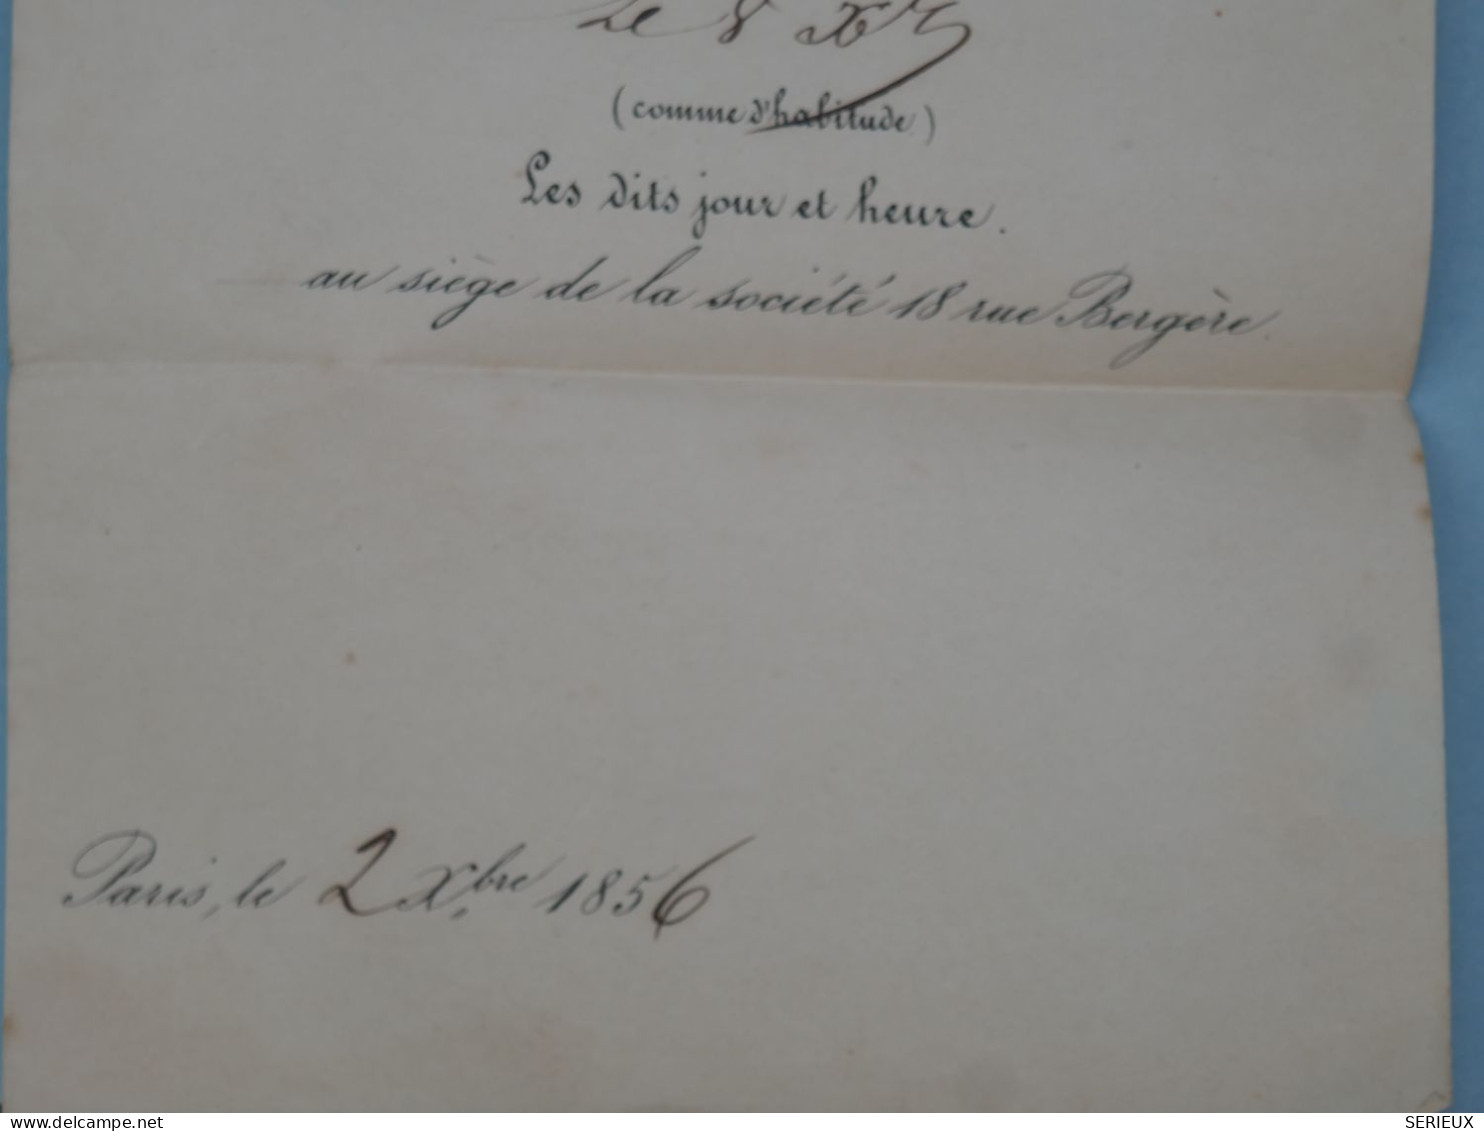 Le 8 Xbre
(comme d'habitude)
Les dits jour et heure.
au siège de la société 18 rue Bergère
Paris, le 2 Xbre 1856
SERIEUX